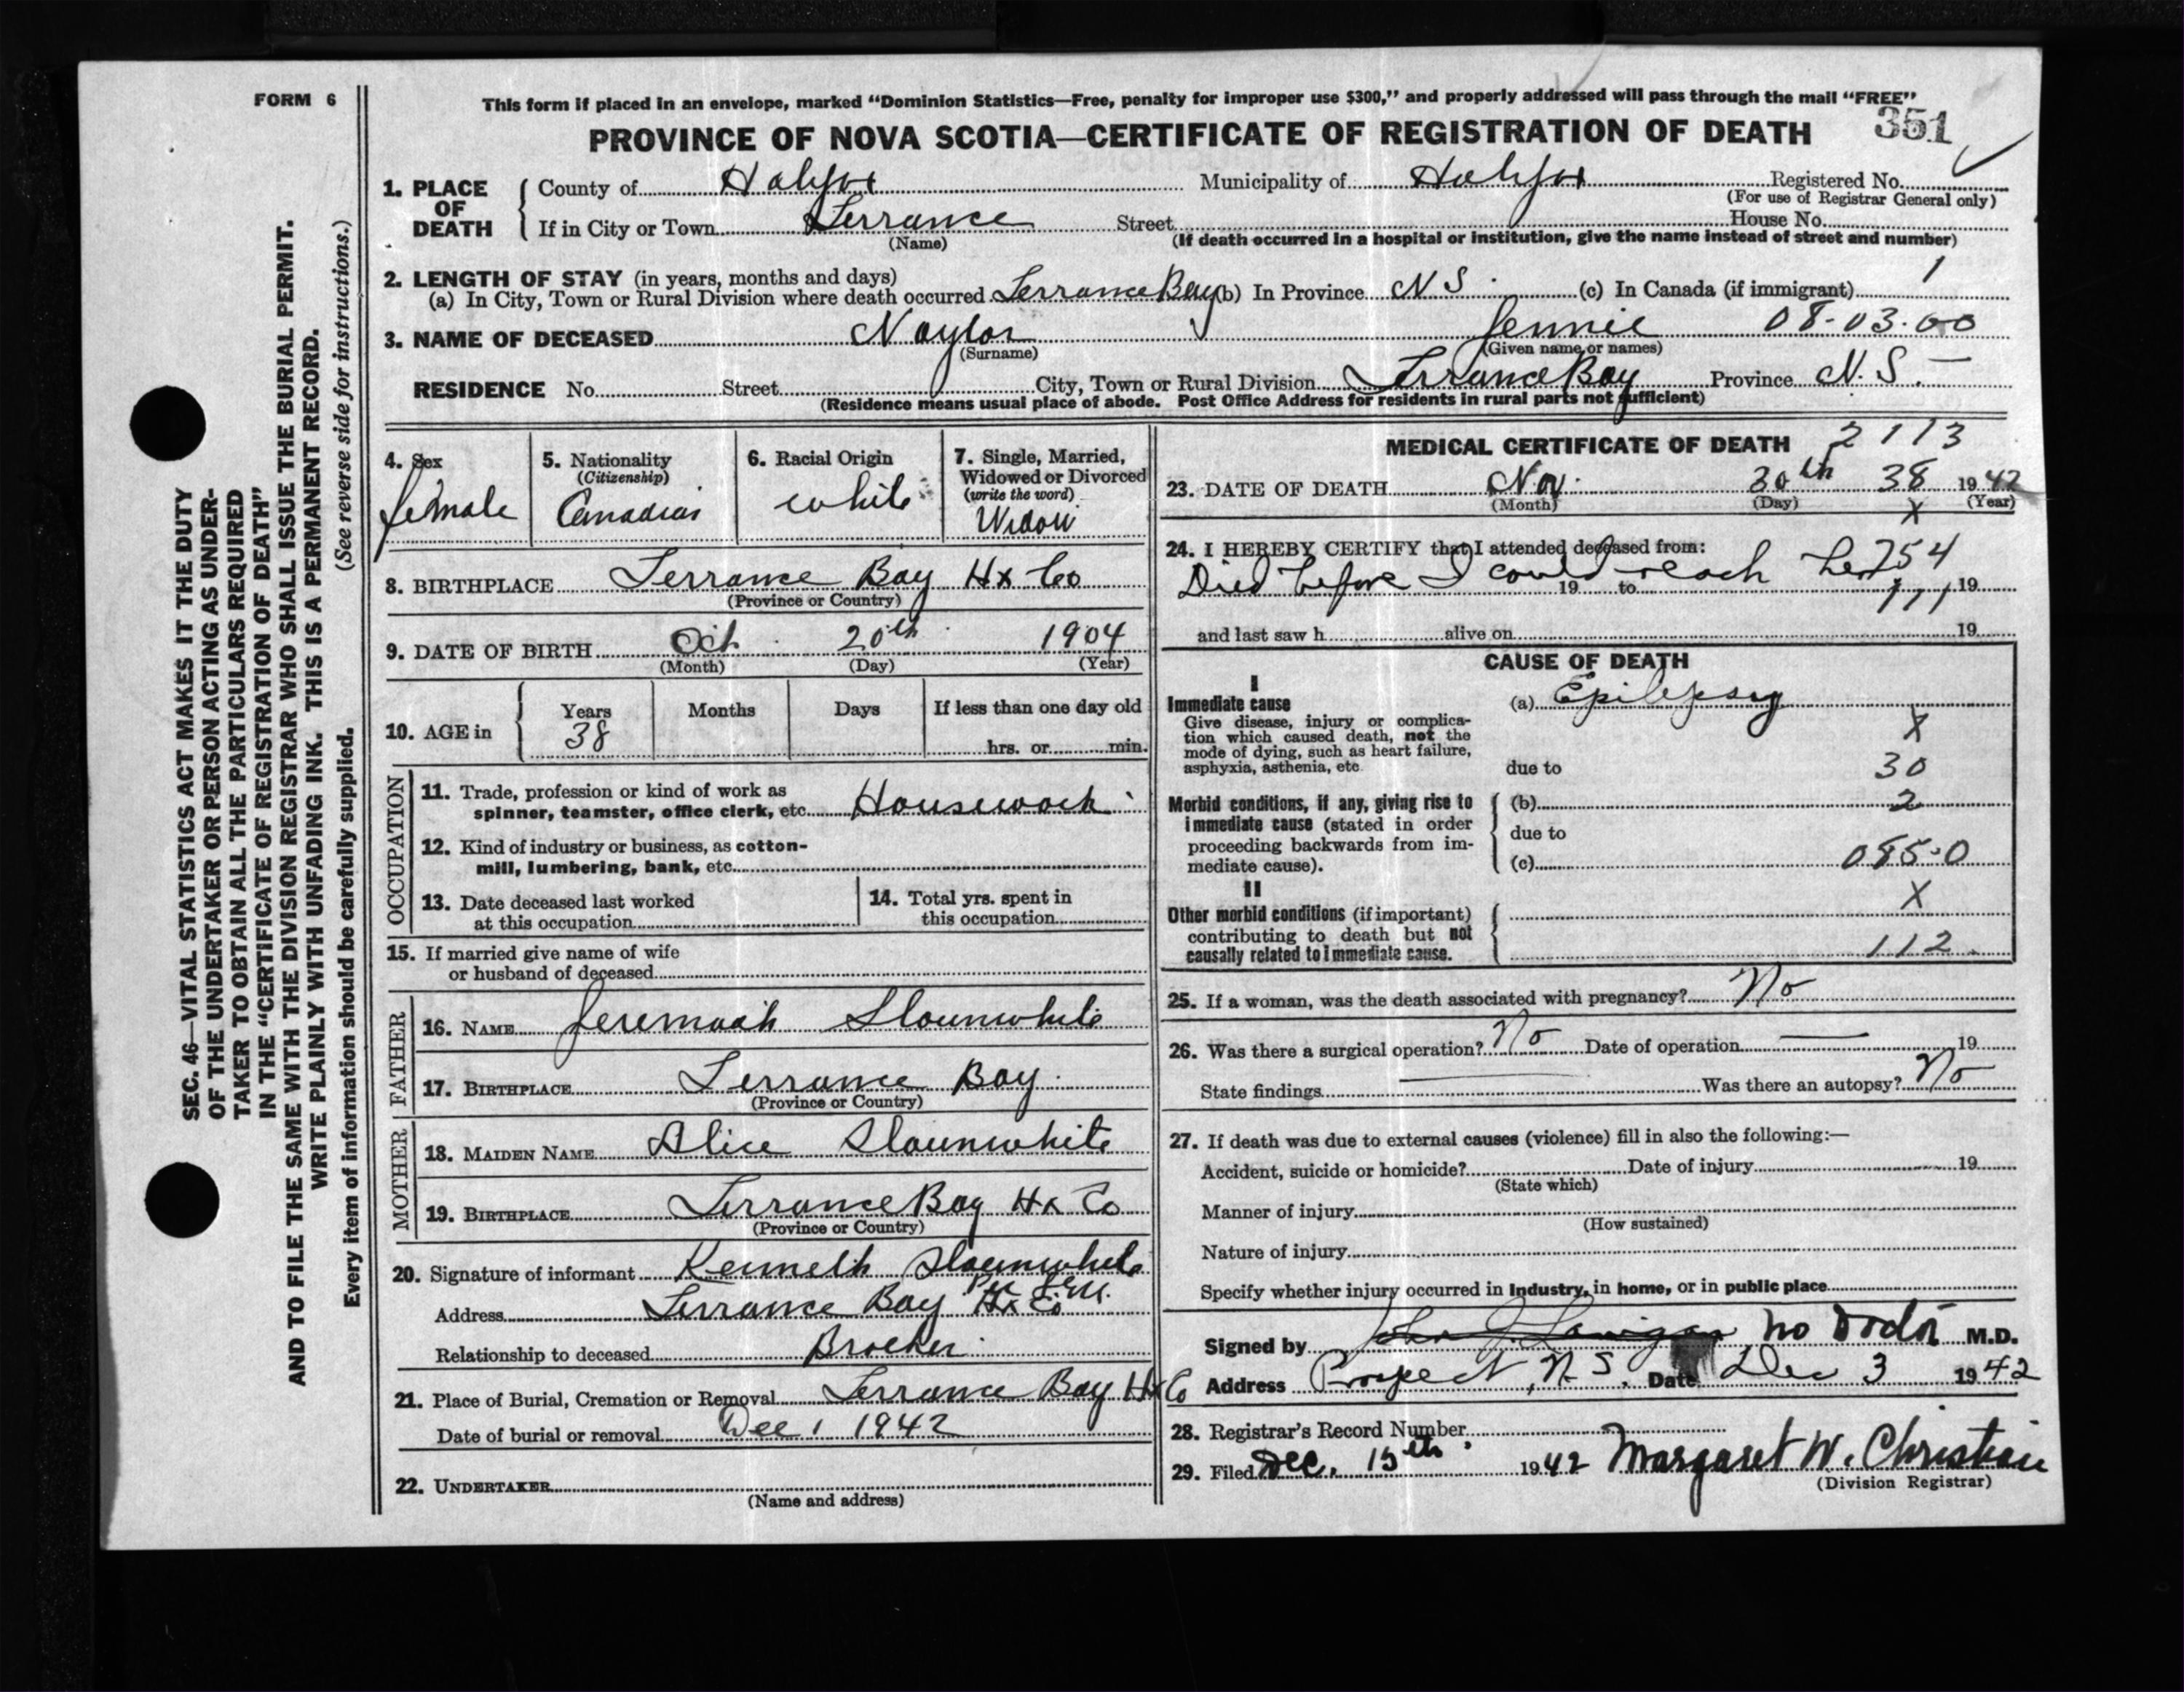 FORM 6
This form if placed in an envelope, marked “Dominion Statistics—Free, penalty for improper use $300,” and properly addressed will pass through the mail “FREE”
PROVINCE OF NOVA SCOTIA—CERTIFICATE OF REGISTRATION OF DEATH 351
1. PLACE OF DEATH
County of Halifax Municipality of Halifax Registered No.
(For use of Registrar General only)
If in City or Town Terrance Street House No.
(Name) (If death occurred in a hospital or institution, give the name instead of street and number)
2. LENGTH OF STAY (in years, months and days) 1
(a) In City, Town or Rural Division where death occurred Terrance Bay (b) In Province N S (c) In Canada (if immigrant)
3. NAME OF DECEASED Naylor Jennie 08-03-00
(Surname) (Given name or names)
RESIDENCE No. Street City, Town or Rural Division Terrance Bay Province N. S.
(Residence means usual place of abode. Post Office Address for residents in rural parts not sufficient)
4. Sex
female
5. Nationality
(Citizenship)
Canadian
6. Racial Origin
white
7. Single, Married,
Widowed or Divorced
(write the word)
Widow
8. BIRTHPLACE Terrance Bay Hx Co
(Province or Country)
9. DATE OF BIRTH Oct 20th 1904
(Month) (Day) (Year)
10. AGE in
Years Months Days If less than one day old
38 hrs. or min.
OCCUPATION
11. Trade, profession or kind of work as
spinner, teamster, office clerk, etc. Housework
12. Kind of industry or business, as cotton-
mill, lumbering, bank, etc.
13. Date deceased last worked
at this occupation
14. Total yrs. spent in
this occupation
15. If married give name of wife
or husband of deceased
FATHER
16. NAME Jeremiah Slaunwhite
17. BIRTHPLACE Terrance Bay
(Province or Country)
MOTHER
18. MAIDEN NAME Alice Slaunwhite
19. BIRTHPLACE Terrance Bay Hx Co
(Province or Country)
20. Signature of informant Kenneth Slaunwhite
Address Terrance Bay Hx Co
Relationship to deceased Brother
21. Place of Burial, Cremation or Removal Terrance Bay Hx Co
Date of burial or removal Dec 1 1942
22. UNDERTAKER
(Name and address)
MEDICAL CERTIFICATE OF DEATH 2113
23. DATE OF DEATH Nov. 30th 38 1942
(Month) (Day) X (Year)
24. I HEREBY CERTIFY that I attended deceased from:
Died before I could reach her 754
19 to 111 19
and last saw h alive on 19
CAUSE OF DEATH
I
Immediate cause
Give disease, injury or complica-
tion which caused death, not the
mode of dying, such as heart failure,
asphyxia, asthenia, etc
(a) Epilepsy
X
due to 30
Morbid conditions, if any, giving rise to
immediate cause (stated in order
proceeding backwards from im-
mediate cause).
(b) 2
due to
(c) 085.0
II X
Other morbid conditions (if important)
contributing to death but not
causally related to immediate cause.
112
25. If a woman, was the death associated with pregnancy? No
26. Was there a surgical operation? No Date of operation — 19
State findings — Was there an autopsy? No
27. If death was due to external causes (violence) fill in also the following:—
Accident, suicide or homicide? Date of injury 19
(State which)
Manner of injury
(How sustained)
Nature of injury
Specify whether injury occurred in industry, in home, or in public place
Signed by John J. Lanigan no Doctor M.D.
Address Prospect, N. S. Date Dec 3 1942
28. Registrar's Record Number
29. Filed Dec. 15th 1942 Margaret W. Christian
(Division Registrar)
SEC. 46—VITAL STATISTICS ACT MAKES IT THE DUTY
OF THE UNDERTAKER OR PERSON ACTING AS UNDER-
TAKER TO OBTAIN ALL THE PARTICULARS REQUIRED
IN THE “CERTIFICATE OF REGISTRATION OF DEATH”
AND TO FILE THE SAME WITH THE DIVISION REGISTRAR WHO SHALL ISSUE THE BURIAL PERMIT.
WRITE PLAINLY WITH UNFADING INK. THIS IS A PERMANENT RECORD.
Every item of information should be carefully supplied. (See reverse side for instructions.)